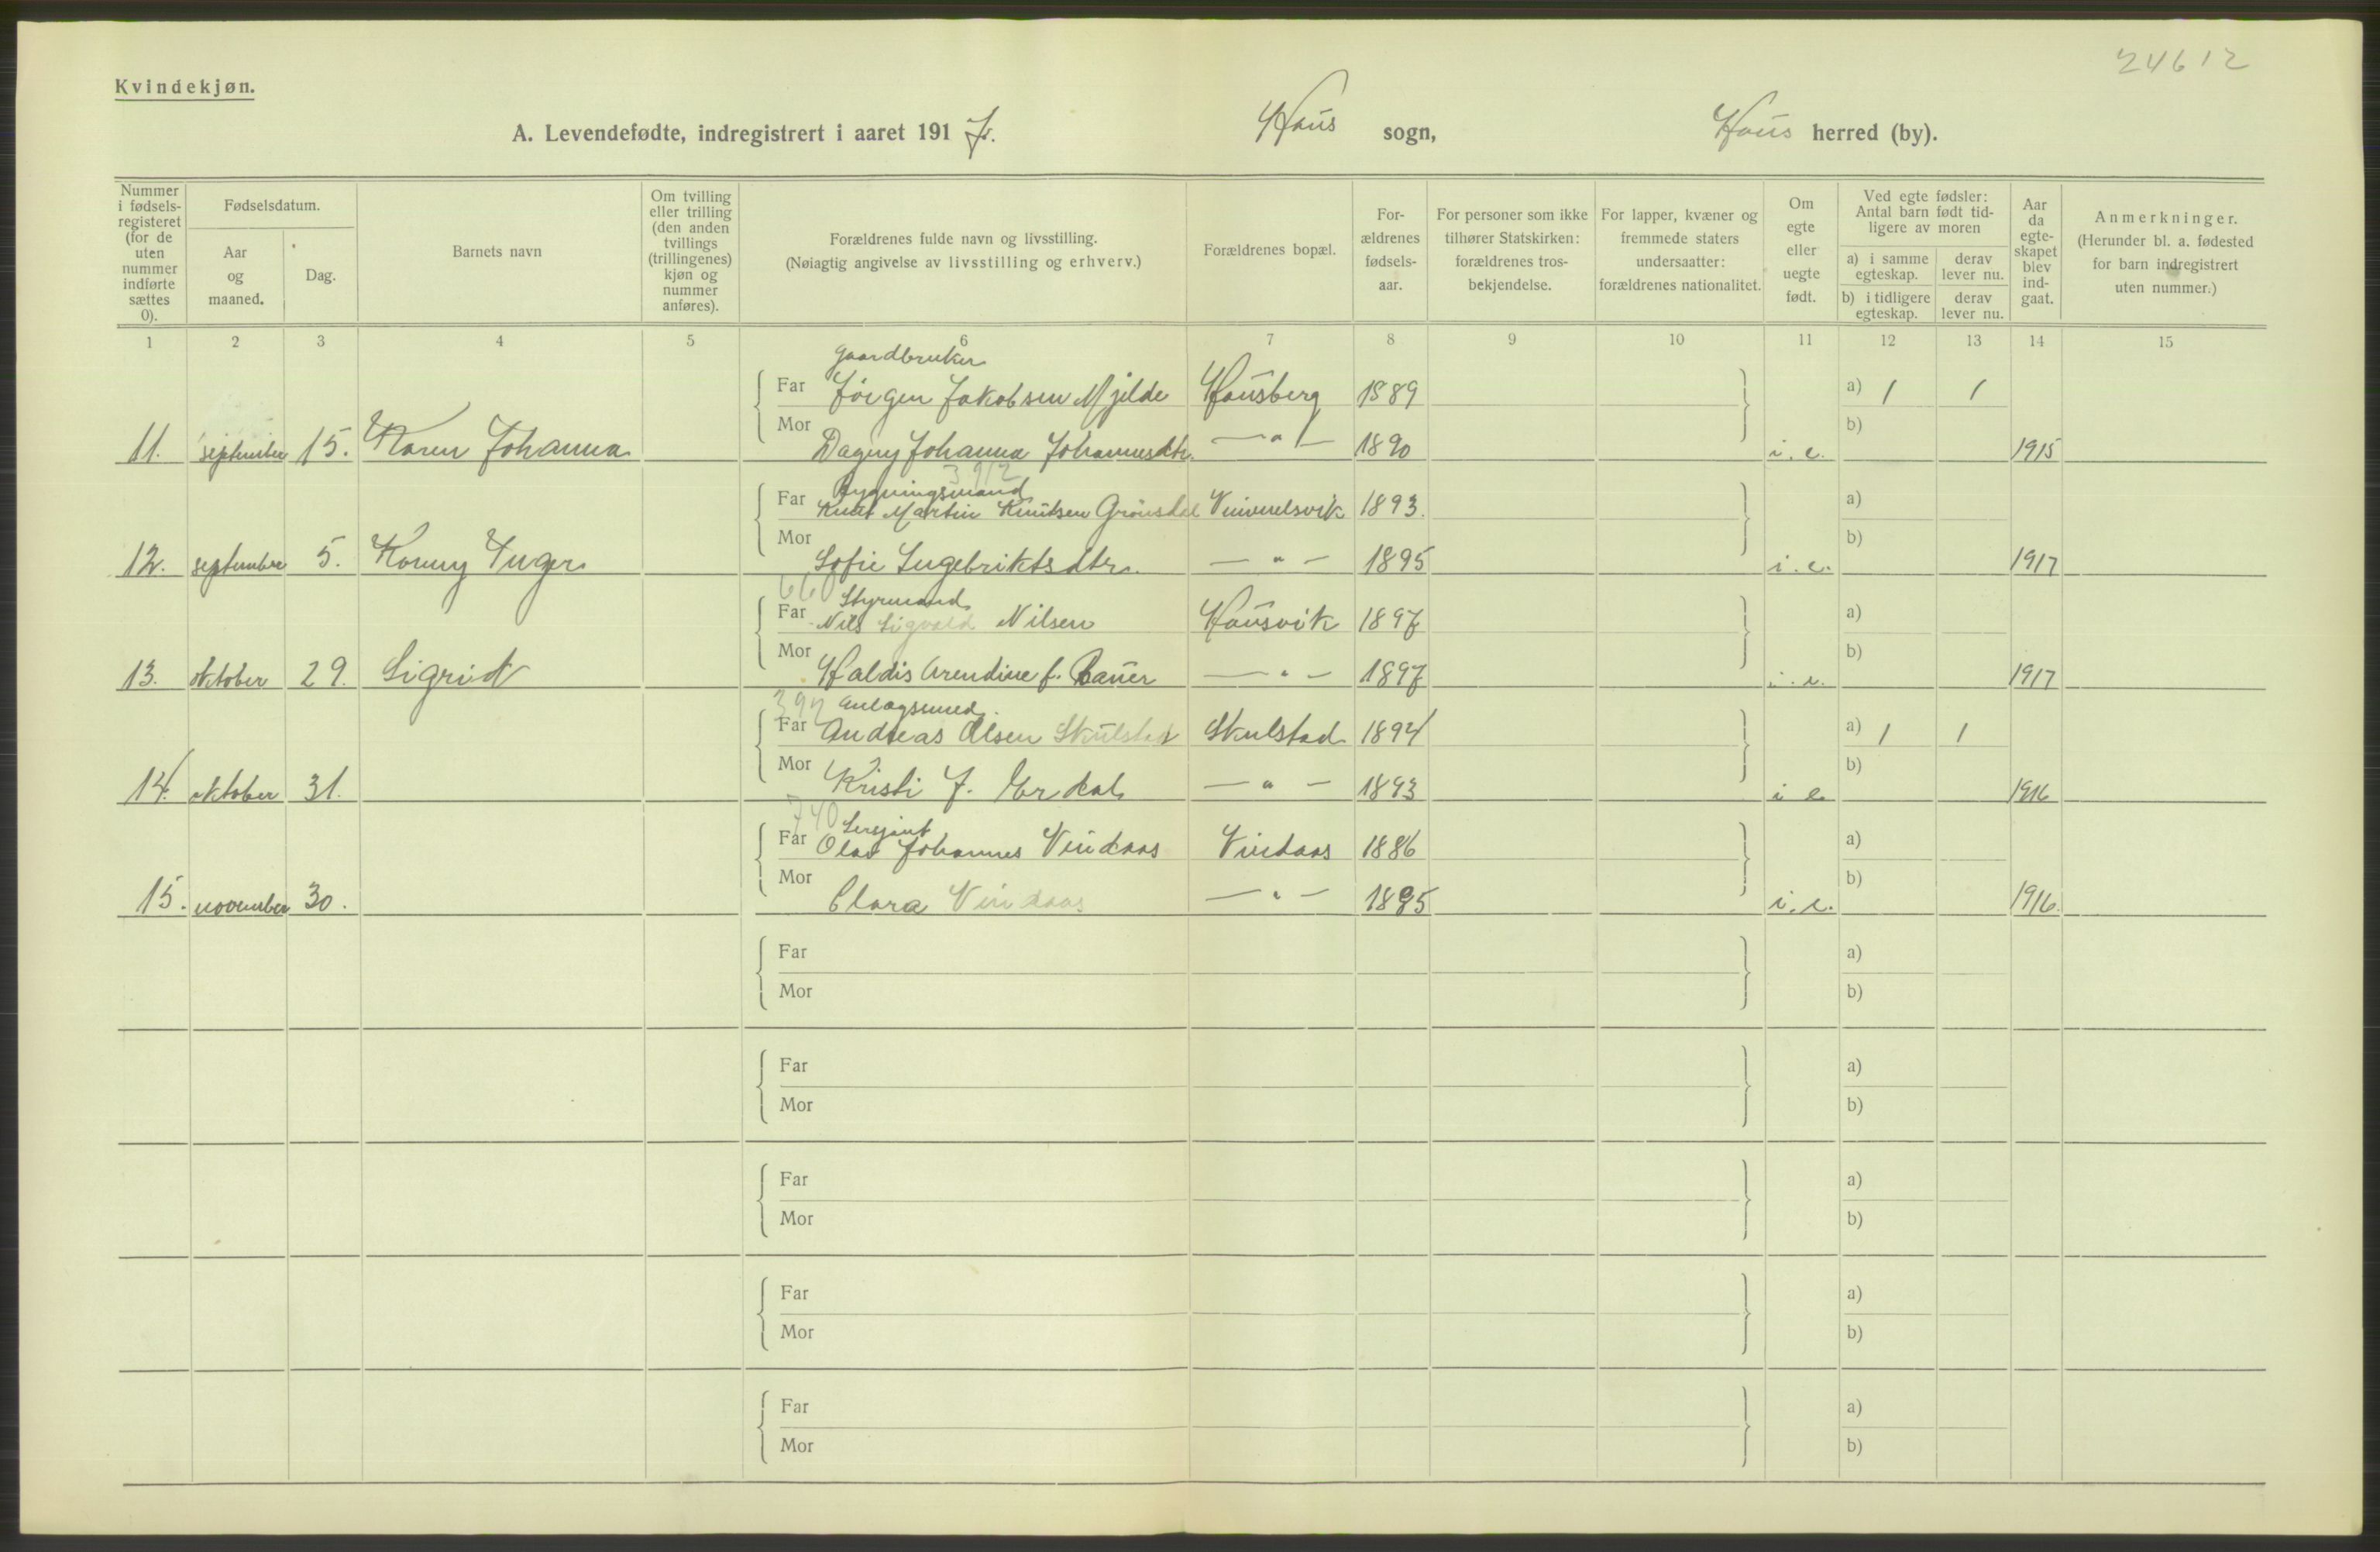 24612
Kvindekjøn.
A. Levendefødte, indregistrert i aaret 1917. Haus sogn, Haus herred (by).
Nummer i fødsels-registeret (for de uten nummer indførte sættes 0).
Fødselsdatum.
Aar og maaned.
Dag.
Barnets navn
Om tvilling eller trilling (den anden tvillings (trillingenes) kjøn og nummer anføres).
Forældrenes fulde navn og livsstilling.
(Nøiagtig angivelse av livsstilling og erhverv.)
Forældrenes bopæl.
For-ældrenes fødsels-aar.
For personer som ikke tilhører Statskirken: forældrenes tros-bekjendelse.
For lapper, kvæner og fremmede staters undersaatter: forældrenes nationalitet.
Om egte eller uegte født.
Ved egte fødsler: Antal barn født tid-ligere av moren
a) i samme egteskap.
derav lever nu.
b) i tidligere egteskap.
derav lever nu.
Aar da egte-skapet blev ind-gaat.
Anmerkninger.
(Herunder bl. a. fødested for barn indregistrert uten nummer.)
1 2 3 4 5 6 7 8 9 10 11 12 13 14 15
Gaardbruker
Far Jørgen Jakobsen Mjelde Hausberg 1889 a) 1 1
Mor b)
11. september 15. Karen Johanna Dagny Johanna Johannesdtr. — " — 1890 i. e. 1915
3912
Bygningsmand
Far Knut Martin Knutsen Grønsdal 1893. a)
Mor b)
12. september 5. Konny Inger Sofie Ingebriktsdtr. — " — 1895 i. e. 1917
660 Styrmand
Far Nils Sigvald Nilsen Hausvik 1897 a)
Mor b)
13. oktober 29. Sigrid Haldis Arendine f. Bauer — " — 1897 i. e. 1917
397 Anlægssmed.
Far Andreas Olsen Skulstad Skulstad 1894 a) 1 1
Mor b)
14. oktober 31. Kristi J. Erdal — " — 1893 i e 1916
740 Sersjant
Far Olav Johannes Vindaas Vindaas 1886 a)
Mor b)
15. november 30. Clara Vindaas — " — 1895 i. e. 1916.
Far a)
Mor b)
Far a)
Mor b)
Far a)
Mor b)
Far a)
Mor b)
Far a)
Mor b)